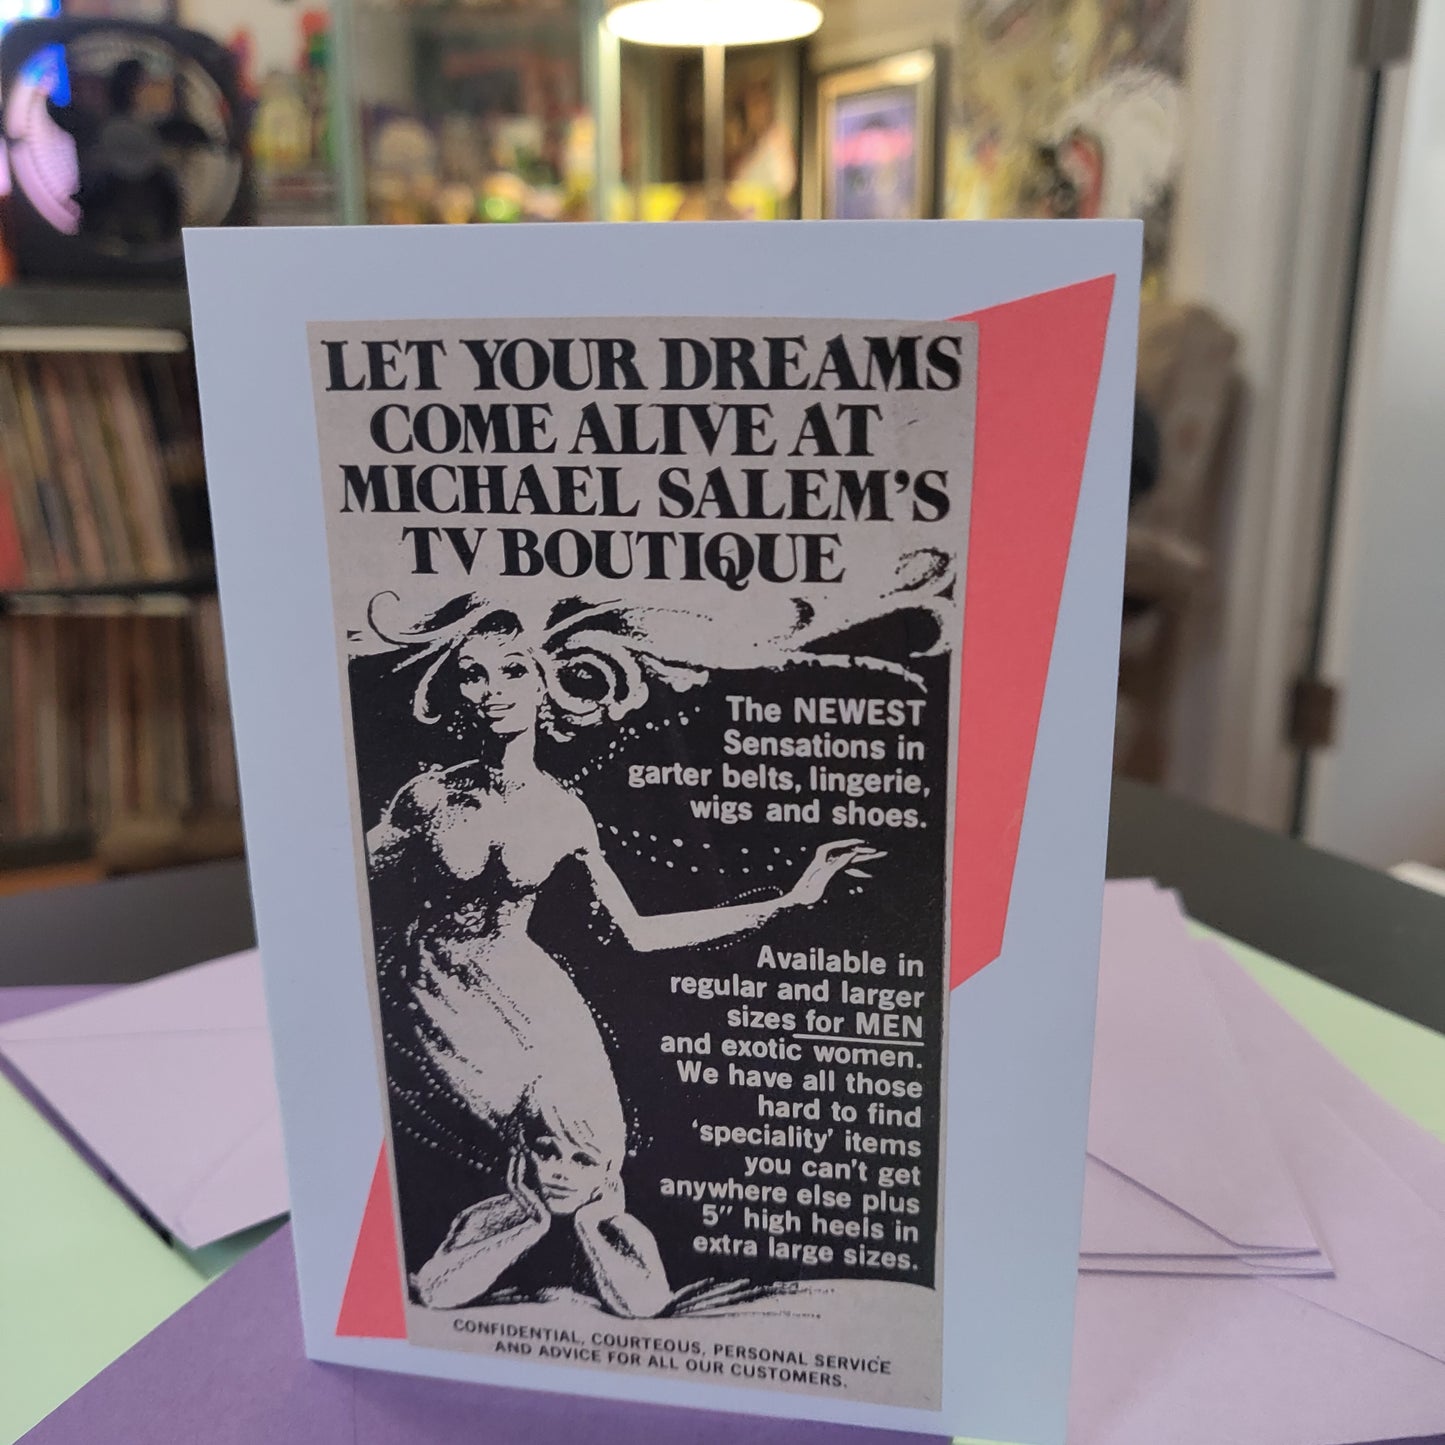 LET YOUR DREAMS
COME ALIVE AT
MICHAEL SALEM'S
TV BOUTIQUE
The NEWEST
Sensations in
garter belts, lingerie,
wigs and shoes.
Available in
regular and larger
sizes for MEN
and exotic women.
We have all those
hard to find
'speciality' items
you can't get
anywhere else plus
5" high heels in
extra large sizes.
CONFIDENTIAL, COURTEOUS, PERSONAL SERVICE
AND ADVICE FOR ALL OUR CUSTOMERS.